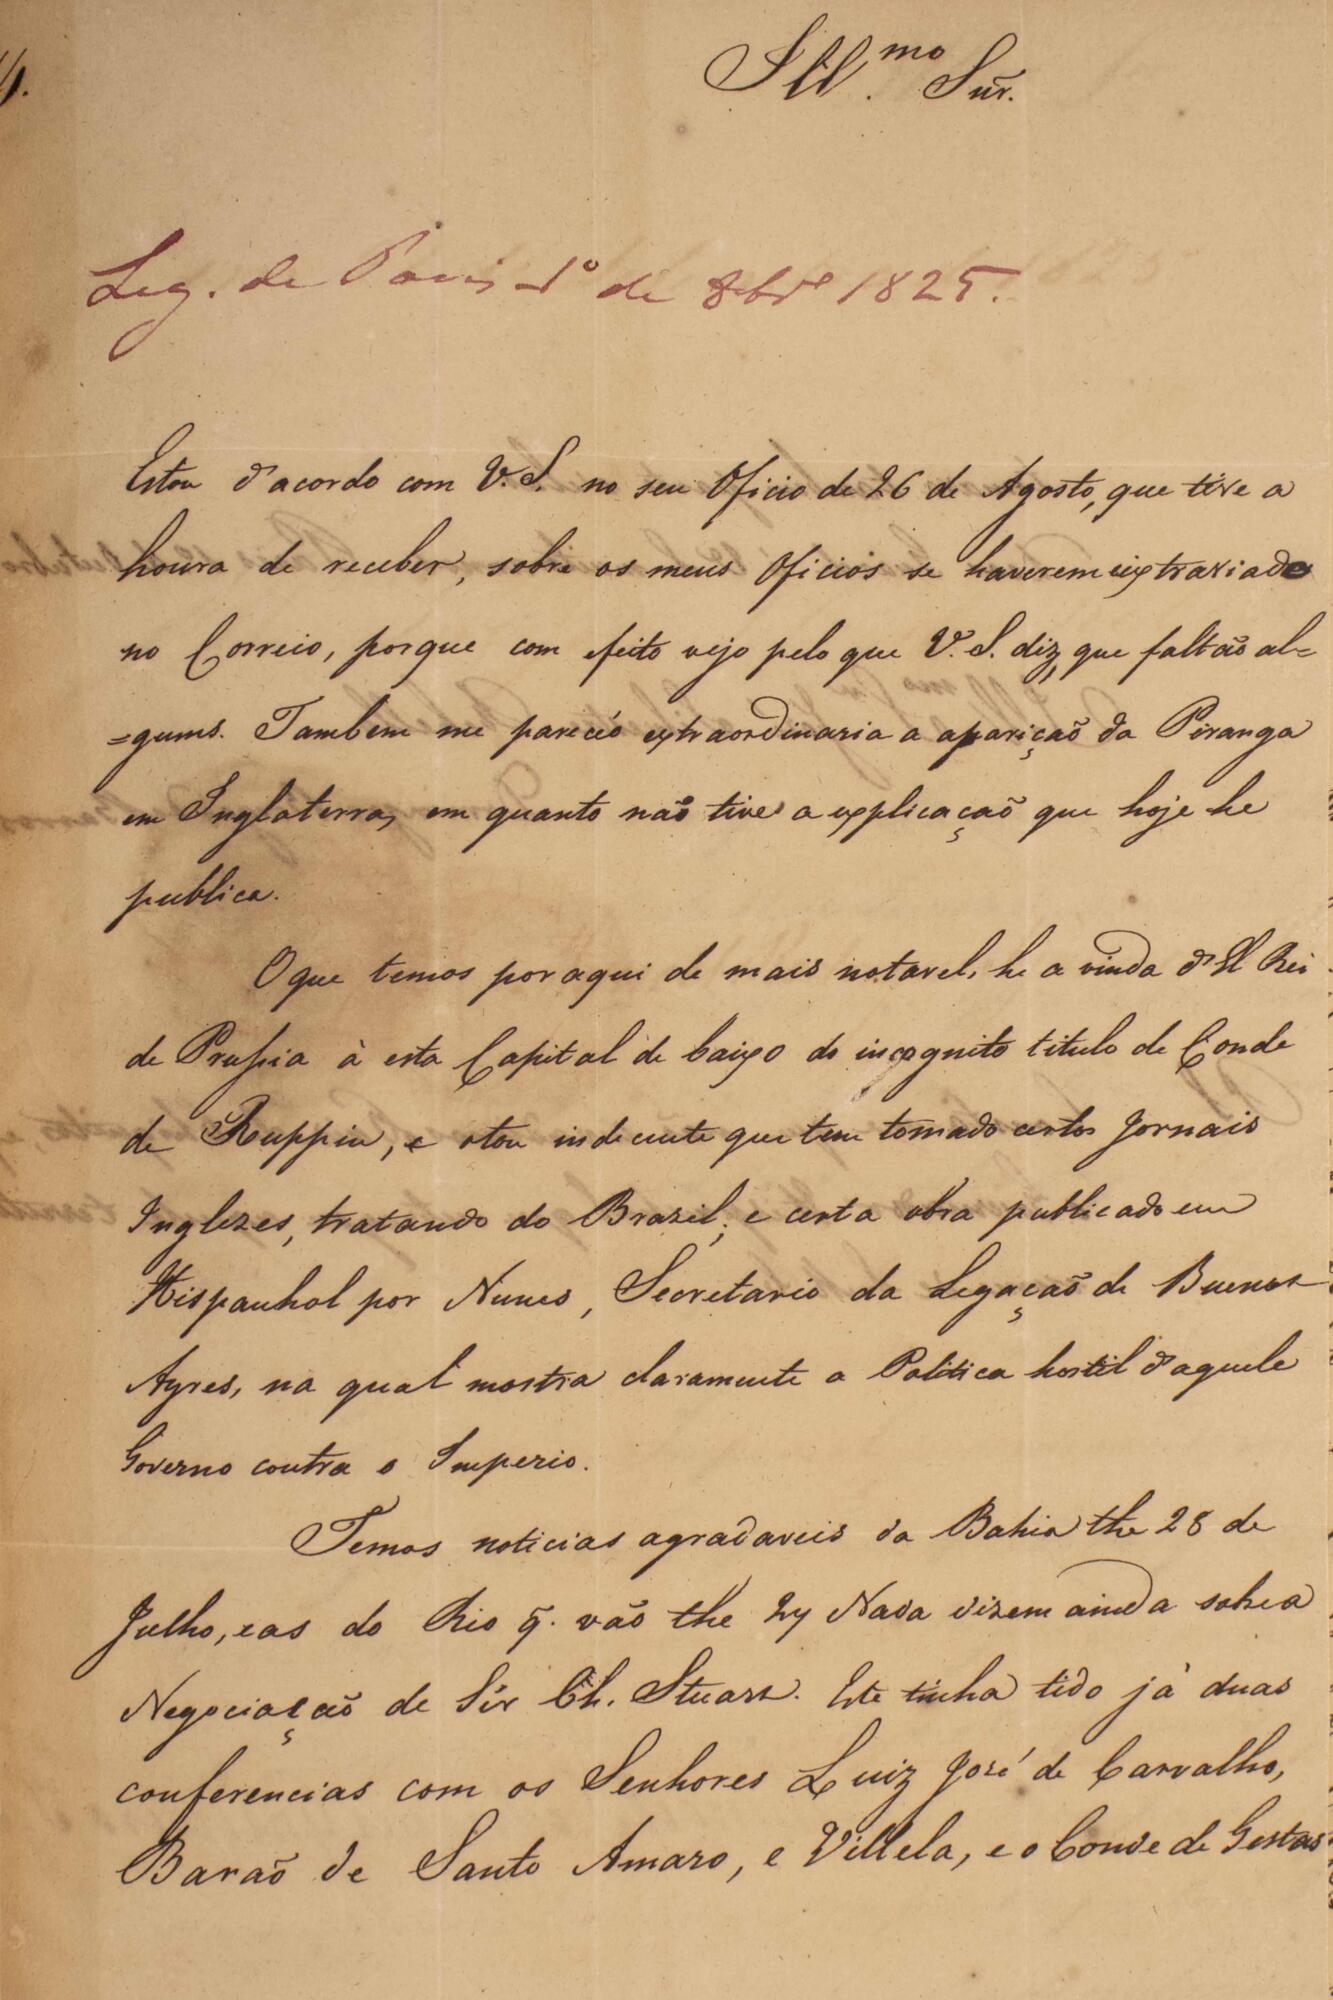 Ill.mo Snr.
Leg. de Paris 1º de 8brº 1825.
Estou d'acordo com V. S. no seu Oficio de 26 de Agosto, que tive a
honra de receber, sobre os meus Oficios se haverem extraviado
no Correio, porque com efeito vejo pelo que V. S. diz, que faltão al=
=guns. Tambem me pareceo extraordinaria a aparição da Piranga
em Inglaterra, em quanto não tive a explicação que hoje he
publica.
O que temos por aqui de mais notavel, he a vinda d'El Rei
de Prussia à esta Capital de baixo do incognito titulo de Conde
de Ruppin, e o tou indecente que tem tomado certos Jornais
Inglezes, tratando do Brazil; e certa obra publicado em
Hispanhol por Nunes, Secretario da Legação de Buenos
Ayres, na qual mostra claramente a Politica hostil d'aquele
Governo contra o Imperio.
Temos noticias agradaveis da Bahia the 28 de
Julho, e as do Rio q. vão the 24 Nada dizem ainda sobre a
Negociação de Sir Ch. Stuart. Este tinha tido já duas
conferencias com os Senhores Luiz José de Carvalho,
Barão de Santo Amaro, e Villela, e o Conde de Gestas